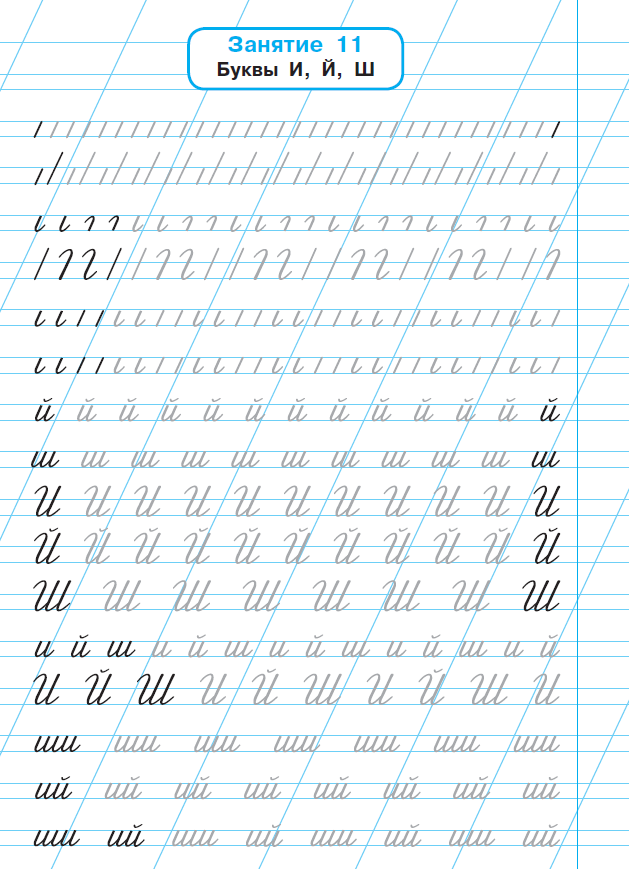 Занятие 11
Буквы И, Й, Ш
й й й й й й й й й й й й й
ш ш ш ш ш ш ш ш ш ш ш
И И И И И И И И И И И
Й Й Й Й Й Й Й Й Й Й Й
Ш Ш Ш Ш Ш Ш Ш Ш
и й ш и й ш и й ш и й ш и й
И Й Ш И Й Ш И Й Ш И
ши ши ши ши ши ши ши
ий ий ий ий ий ий ий ий
ши ий ши ий ши ий ши ий